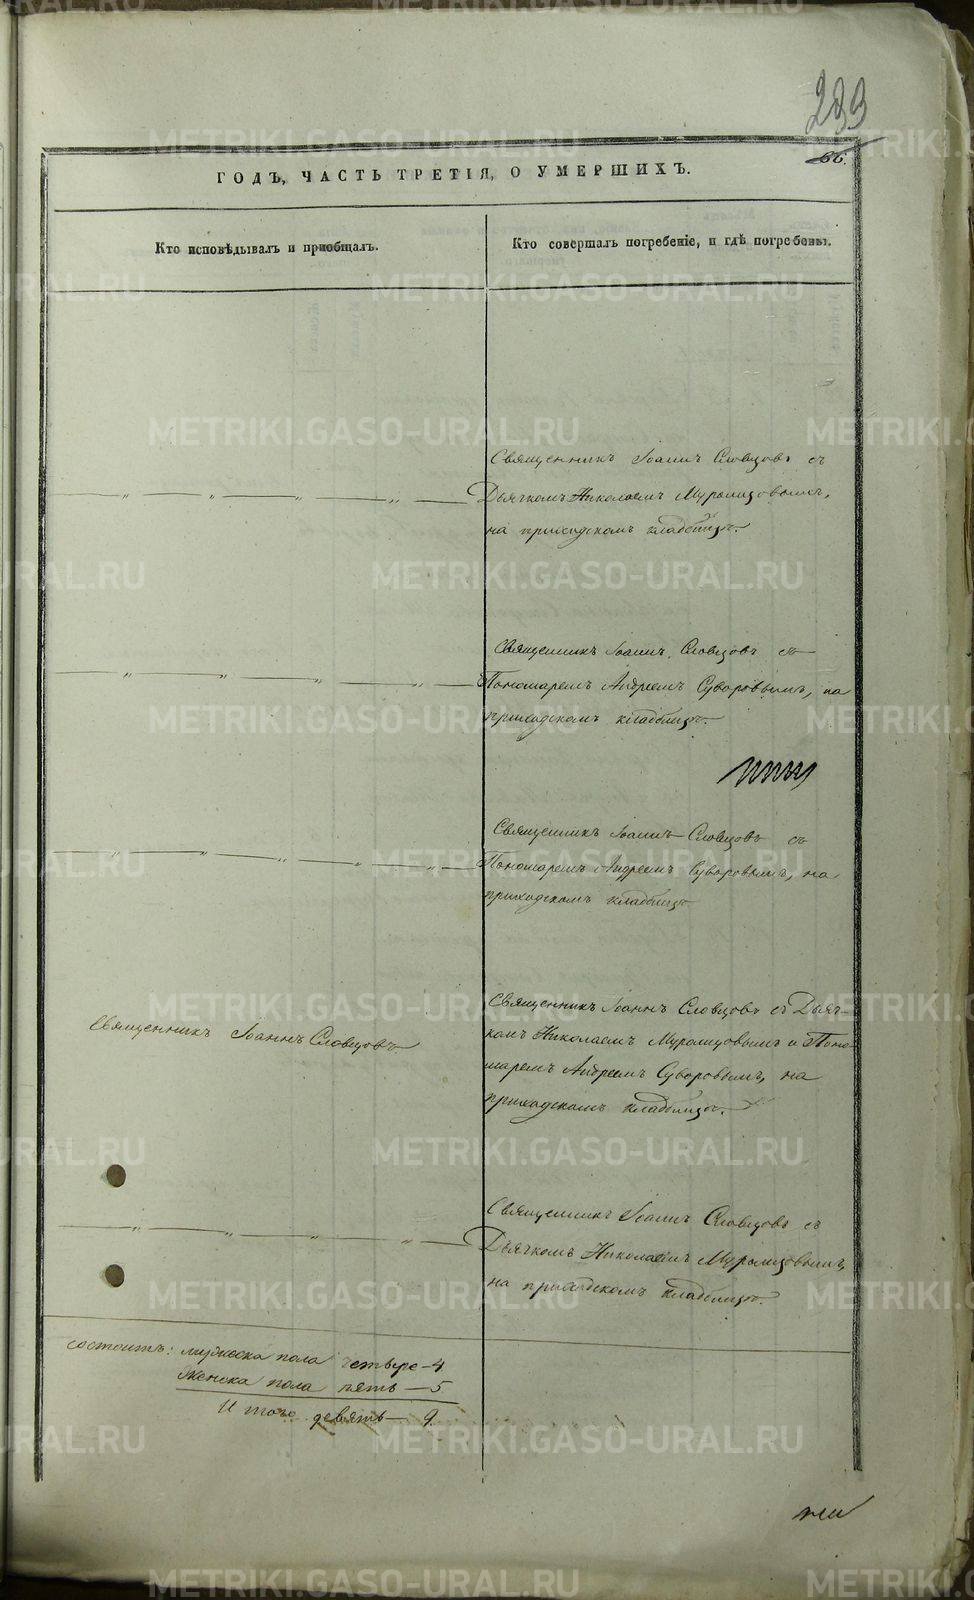 299
66.
ГОДЪ, ЧАСТЬ ТРЕТІЯ, О УМЕРШИХЪ.
Кто исповѣдывалъ и пріобщалъ.
Кто совершалъ погребеніе, и гдѣ погребены.
Священникъ Іоаннъ Словцовъ съ
Дьячкомъ Николаемъ Муромцовымъ,
на приходскомъ кладбищѣ.
Священникъ Іоаннъ Словцовъ съ
Пономаремъ Андреемъ Суворовымъ, на
приходскомъ кладбищѣ.
Священникъ Іоаннъ Словцовъ съ
Пономаремъ Андреемъ Суворовымъ, на
приходскомъ кладбищѣ
Священникъ Іоаннъ Словцовъ
Священникъ Іоаннъ Словцовъ съ Дьяч-
комъ Николаемъ Муромцовымъ и Поно-
маремъ Андреемъ Суворовымъ, на
приходскомъ кладбищѣ.
Священникъ Іоаннъ Словцовъ съ
Дьячкомъ Николаемъ Муромцовымъ,
на приходскомъ кладбищѣ.
состоитъ: мужеска пола четыре - 4
Женска пола пять - 5
Итого девять - 9.
METRIKI.GASO-URAL.RU